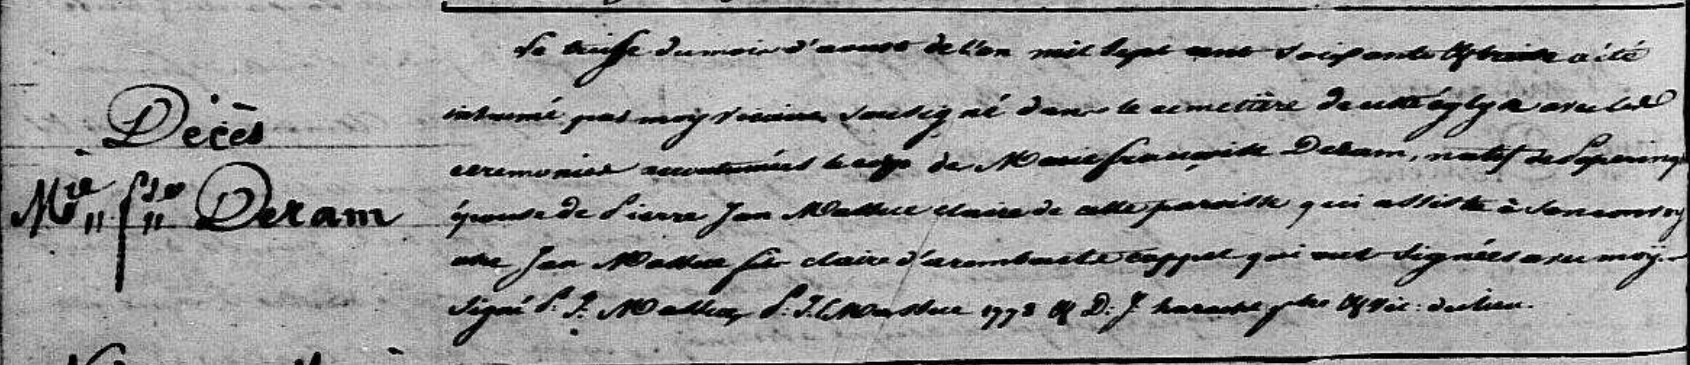 Décès
Mrie frse Deram
Le treisse du mois d'aoust de l'an mil sept cent soixante et treize a été
inhumé par moy vicaire sousigné dans le cemettère de cette église avec les
ceremonies accoutumées le corps de Marie françoise Deram, natif de Poperingue
épouse de Pierre Jan Mallieu claire de cette paroisse qui assista à son convoy
avec Jan fils claire d' cappel qui ont signées avec moy
signé P: J: P: J: 1773 et D: J: ptre et vic: du lieu.